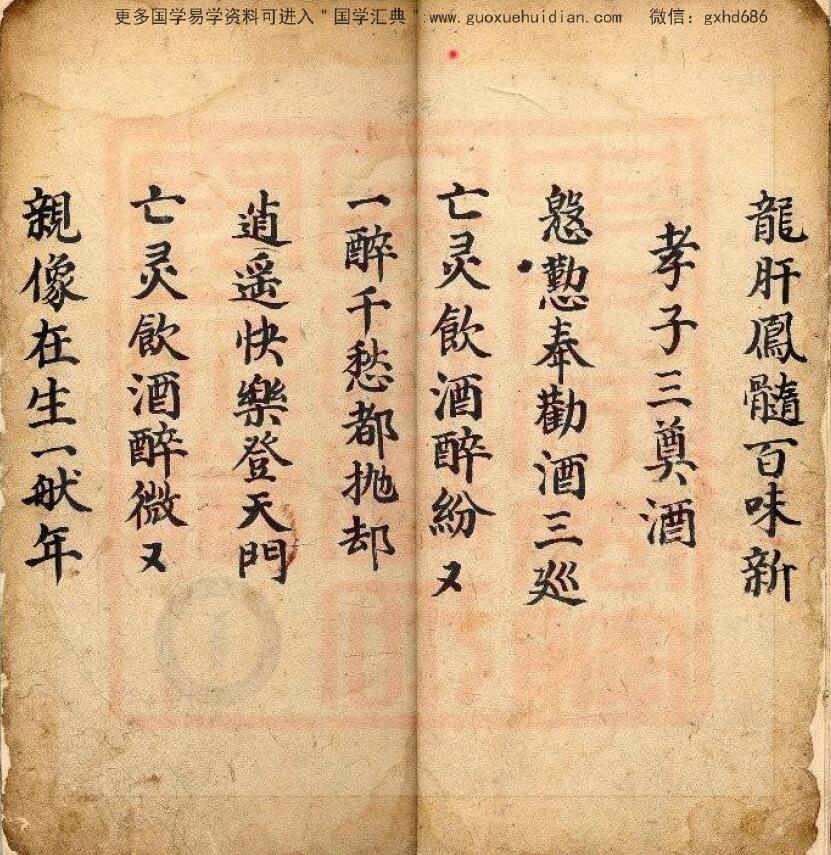 更多国学易学资料可进入"国学汇典" www.guoxuehuidian.com 微信：gxhd686
龍肝鳳髓百味新
孝子三奠酒
慇懃奉勸酒三廵
亡灵飲酒醉紛又
一醉千愁都抛却
逍遥快樂登天門
亡灵飲酒醉微又
親像在生一般年